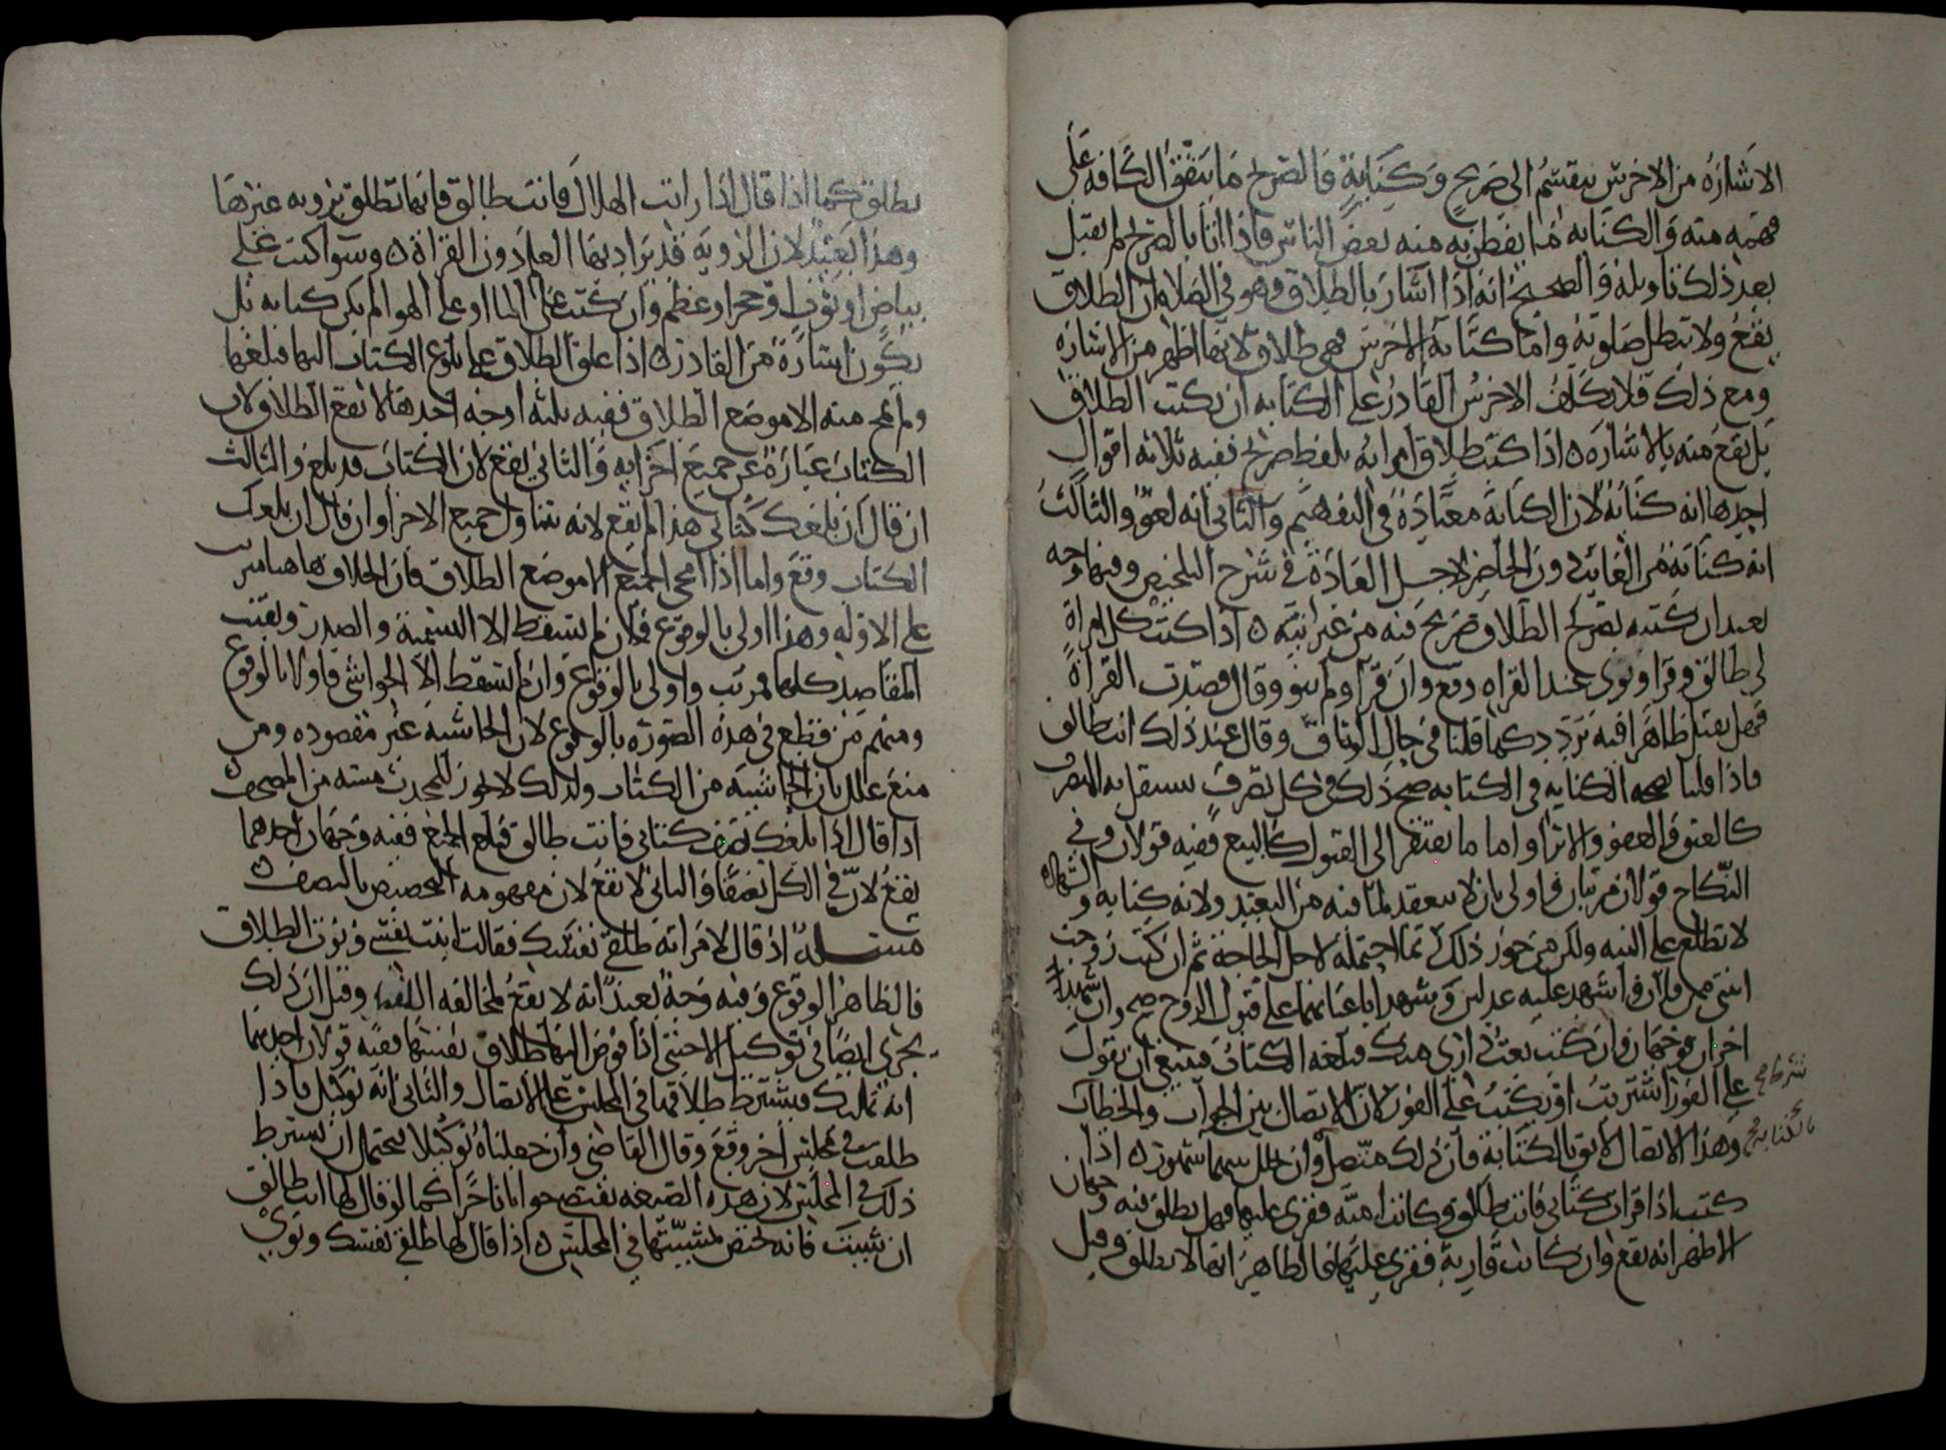 الاشارة من الاخرس ينقسم الى صريح وكناية فالصريح ما يتفق الكافة على
فهمه منه والكناية ما يفطن به منه بعض الناس فاذا اتا بالصريح لم يقبل
بعد ذلك تاويله والصحيح انه اذا اشار بالطلاق وهو في الصلاة ان الطلاق
يقع ولا تبطل صلوته واما كتابة الاخرس فهي طلاق لانها اظهر من الاشارة
ومع ذلك فلا يكلف الاخرس القادر على الكتابة ان يكتب الطلاق
بل يقع منه بالاشارة ه اذا كتب طلاق امراته بلفظ صريح ففيه ثلاثة اقوال
احدها انه كناية لان الكتابة معتادة في التفهيم والثاني انه لغو والثالث
انه كناية من الغائب دون الحاضر لاجل العادة في شرح التلخيص وفيها وجه
بعيد ان كتبه بصريح الطلاق صريح فيه من غير نية ه اذا كتب كل امراة
لي طالق وقرا ونوى عند القراه وقع وان قرا ولم ينو وقال قصدت القراة
فهل يقبل ظاهرا فيه تردد كما قلنا في حال الوثاق وقال عند ذلك انت طالق
فاذا قلنا بصحه الكنايه في الكتابه صح ذلك في كل تصرف يستقل به المتصرف
كالعتق والعفو والابرا واما ما يفتقر الى القبول كالبيع ففيه قولان وفي
النكاح قولان مرتبان واولى بان لا ينعقد لما فيه من التعبد ولانه كناية والشهادة
لا تطلع على النيه ولكن من جوز ذلك ربما احتمله لاجل الحاجة ثم ان كتب زوجت
ابنتي من فلان واشهد عليه عدلين وشهدا باعيانهما على قبول الزوج صح وان شهد
اخران فوجهان وان كتب بعت داري منك فبلغه الكتاب فينبغي ان يقول
على الفور اشتريت او يكتب على الفور لان الاتصال بين الجواب والخطاب شرط صح
وهذا الاتصال لائق بالكتابة فان ذلك متصل وان تخلل بينهما شهور ه اذا بالكتابة صح
كتب اذا قرات كتابي فانت طالق وكانت امية فقري عليها فهل يطلق فيه وجهان
الاظهر انه يقع وان كانت قارية فقري عليها فالظاهر انها لا يطلق وقيل
يطلق كما اذا قال اذا رايت الهلال فانت طالق فانها تطلق برؤية غيرها
وهذا بعيد لان الروية قد يراد بها العلم دون القراة ه وسوا كتب على
بياض او ثوب او حجر او عظم وان كتب على الما او على الهوا لم يكن كتابه بل
يكون اشارة من القادر ه اذا علق الطلاق على بلوغ الكتاب اليها فبلغها
ولم يمح منه الا موضع الطلاق ففيه ثلثه اوجه احدها لا يقع الطلاق لان
الكتاب عبارة عن جميع اجزايه والثاني يقع لان الكتاب قد بلغ والثالث
ان قال ان بلغك كتابي هذا لم يقع لانه يتناول جميع الاجزا وان قال ان بلغك
الكتاب وقع واما اذا امحى الجميع الا موضع الطلاق فان الخلاف هاهنا مرتب
على الاوله وهذا اولى بالوقوع فلان لم يسقط الا التسمية والصدر وبقيت
المقاصد كلها فمرتب واولى بالوقوع وان لم يسقط الا الحواشي فاولى بالوقوع
ومنهم من قطع في هذه الصوره بالوقوع لان الحاشيه غير مقصوده ومن
منع علل بان الحاشيه من الكتاب ولذلك لا يجوز للمحدث مسه من المصحف ه
اذا قال اذا بلغك نصف كتابي فانت طالق فبلغ الجميع ففيه وجهان احدهما
يقع لان في الكل نصفا والثاني لا يقع لان مفهومه التخصيص بالنصف ه
مسئلة اذ قال لامراته طلقي نفسك فقالت ابنت نفسي ونوت الطلاق
فالظاهر الوقوع وفيه وجه بعيد انه لا يقع لمخالفه اللفظ وقيل ان ذلك
يجري ايضا في توكيل الاجنبي اذا فوض اليها طلاق نفسها ففيه قولان احدهما
انه تمليك فيشترط طلاقها في المجلس على الاتصال والثاني انه توكيل فاذا
طلقت في مجلس اخر وقع وقال القاضي وان جعلناه توكيلا يحتمل ان يشترط
ذلك في المجلس لان هذه الصيغه يقتضي جوابا ناجزا كما لو قال لها انت طالق
ان شيت فانه يختص بمشيتها في المجلس ه اذا قال لها طلقي نفسك ونوى